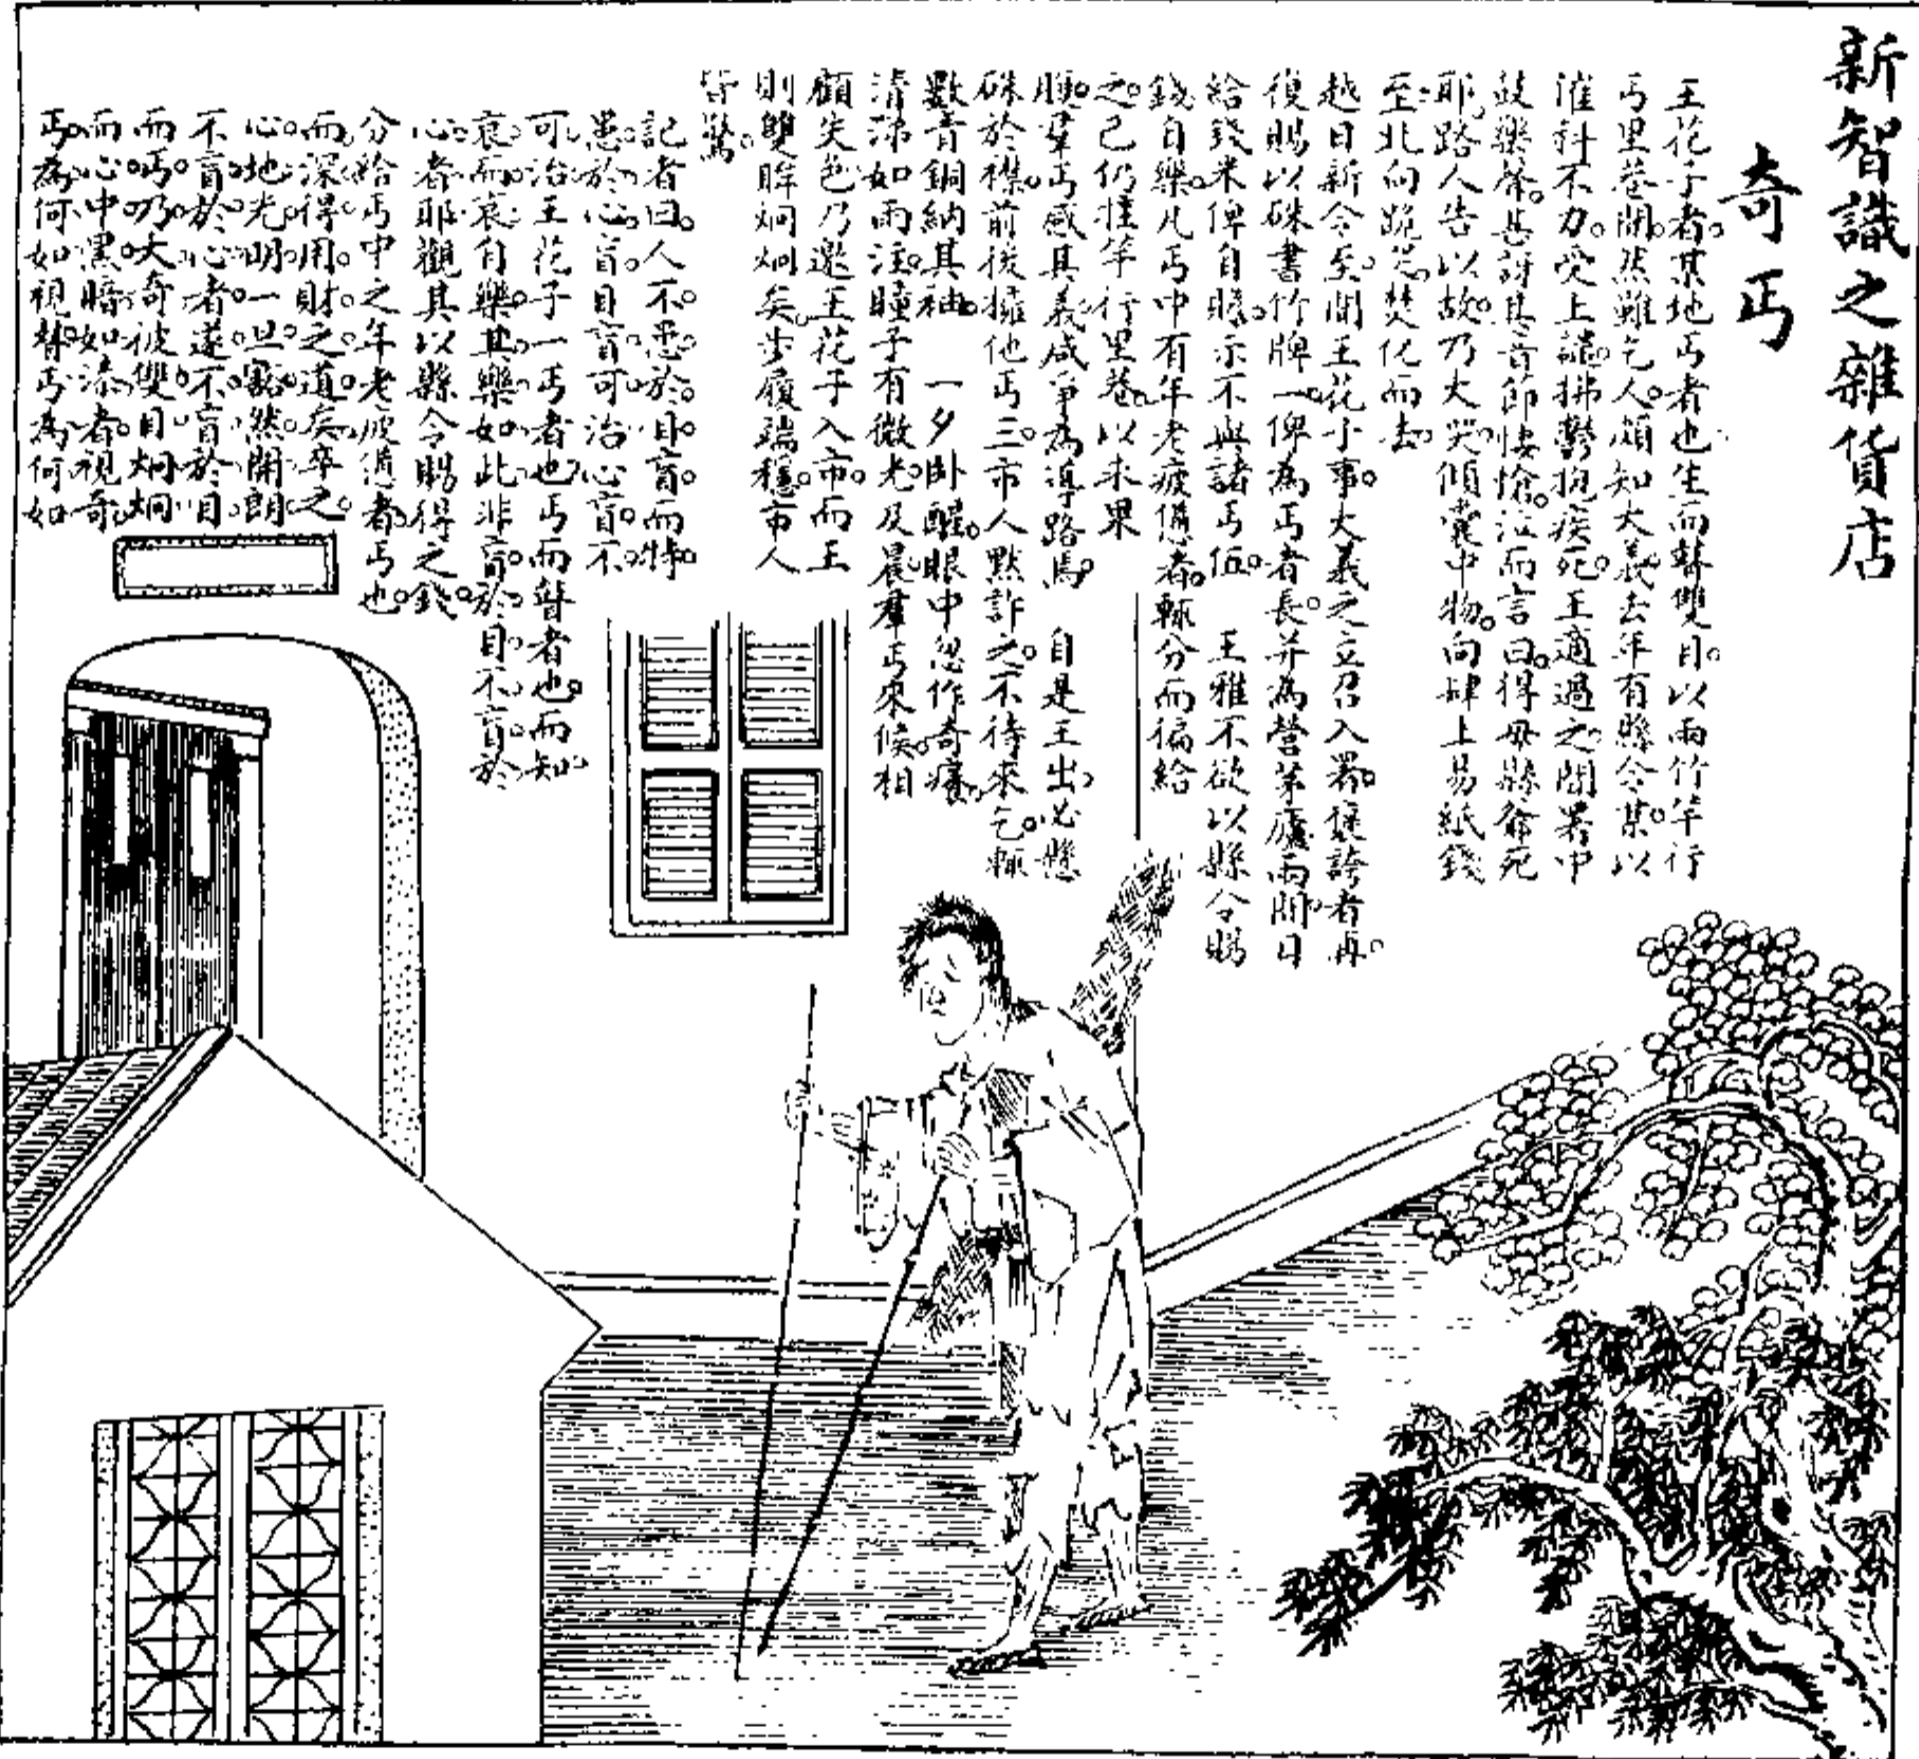 新智識之雜貨店
奇丐
王花子者。某地丐者也。生而瞽雙目。以兩竹竿行
丐里巷間。然雖乞人。頗知大義。去年有縣令某。以
催科不力。受上譴。拂鬱抱疾死。王適過之。聞署中
鼓樂聲。甚訝其音節悽愴。泣而言曰。得毋縣爺死
耶。路人告以故。乃大哭。傾囊中物。向肆上易紙錢
至北向跪。焚化而去。
越日新令至。聞王花子事。大義之。立召入署。褒誇者再。
復賜以硃書竹牌一。俾為丐者長。并為營茅廬兩間。日
給錢米俾自贍。示不與諸丐伍。 王雅不欲以縣令賜
錢自樂。凡丐中有年老疲憊者。輒分而徧給
之。己仍拄竿行里巷。以求果
腹。羣丐感其義。咸爭為導路焉。 自是王出。必懸
硃於襟。前後擁他丐三。市人默許之。不待來乞。輒
數青銅納其袖。 一夕卧醒。眼中忽作奇癢。
清涕如雨注。瞳子有微光。及晨羣丐來候。相
顧失色。乃邀王花子入市。而王
則雙眸炯炯矣。步履端穩。市人
皆驚。
記者曰。人不患於目盲。而特
患於心盲。目盲可治。心盲不
可治。王花子一丐者也。丐而瞽者也。而知
哀而哀。自樂其樂如此。非盲於目不盲於
心者耶。觀其以縣令賜得之錢。
分給丐中之年老疲憊者。丐也。
而深得用財之道矣。卒之
心地光明。一旦豁然開朗
不盲於心者。遂不盲於目
而丐乃大奇。彼雙目炯炯
而心中黑暗如漆者。視奇
丐為何如。視瞽丐為何如